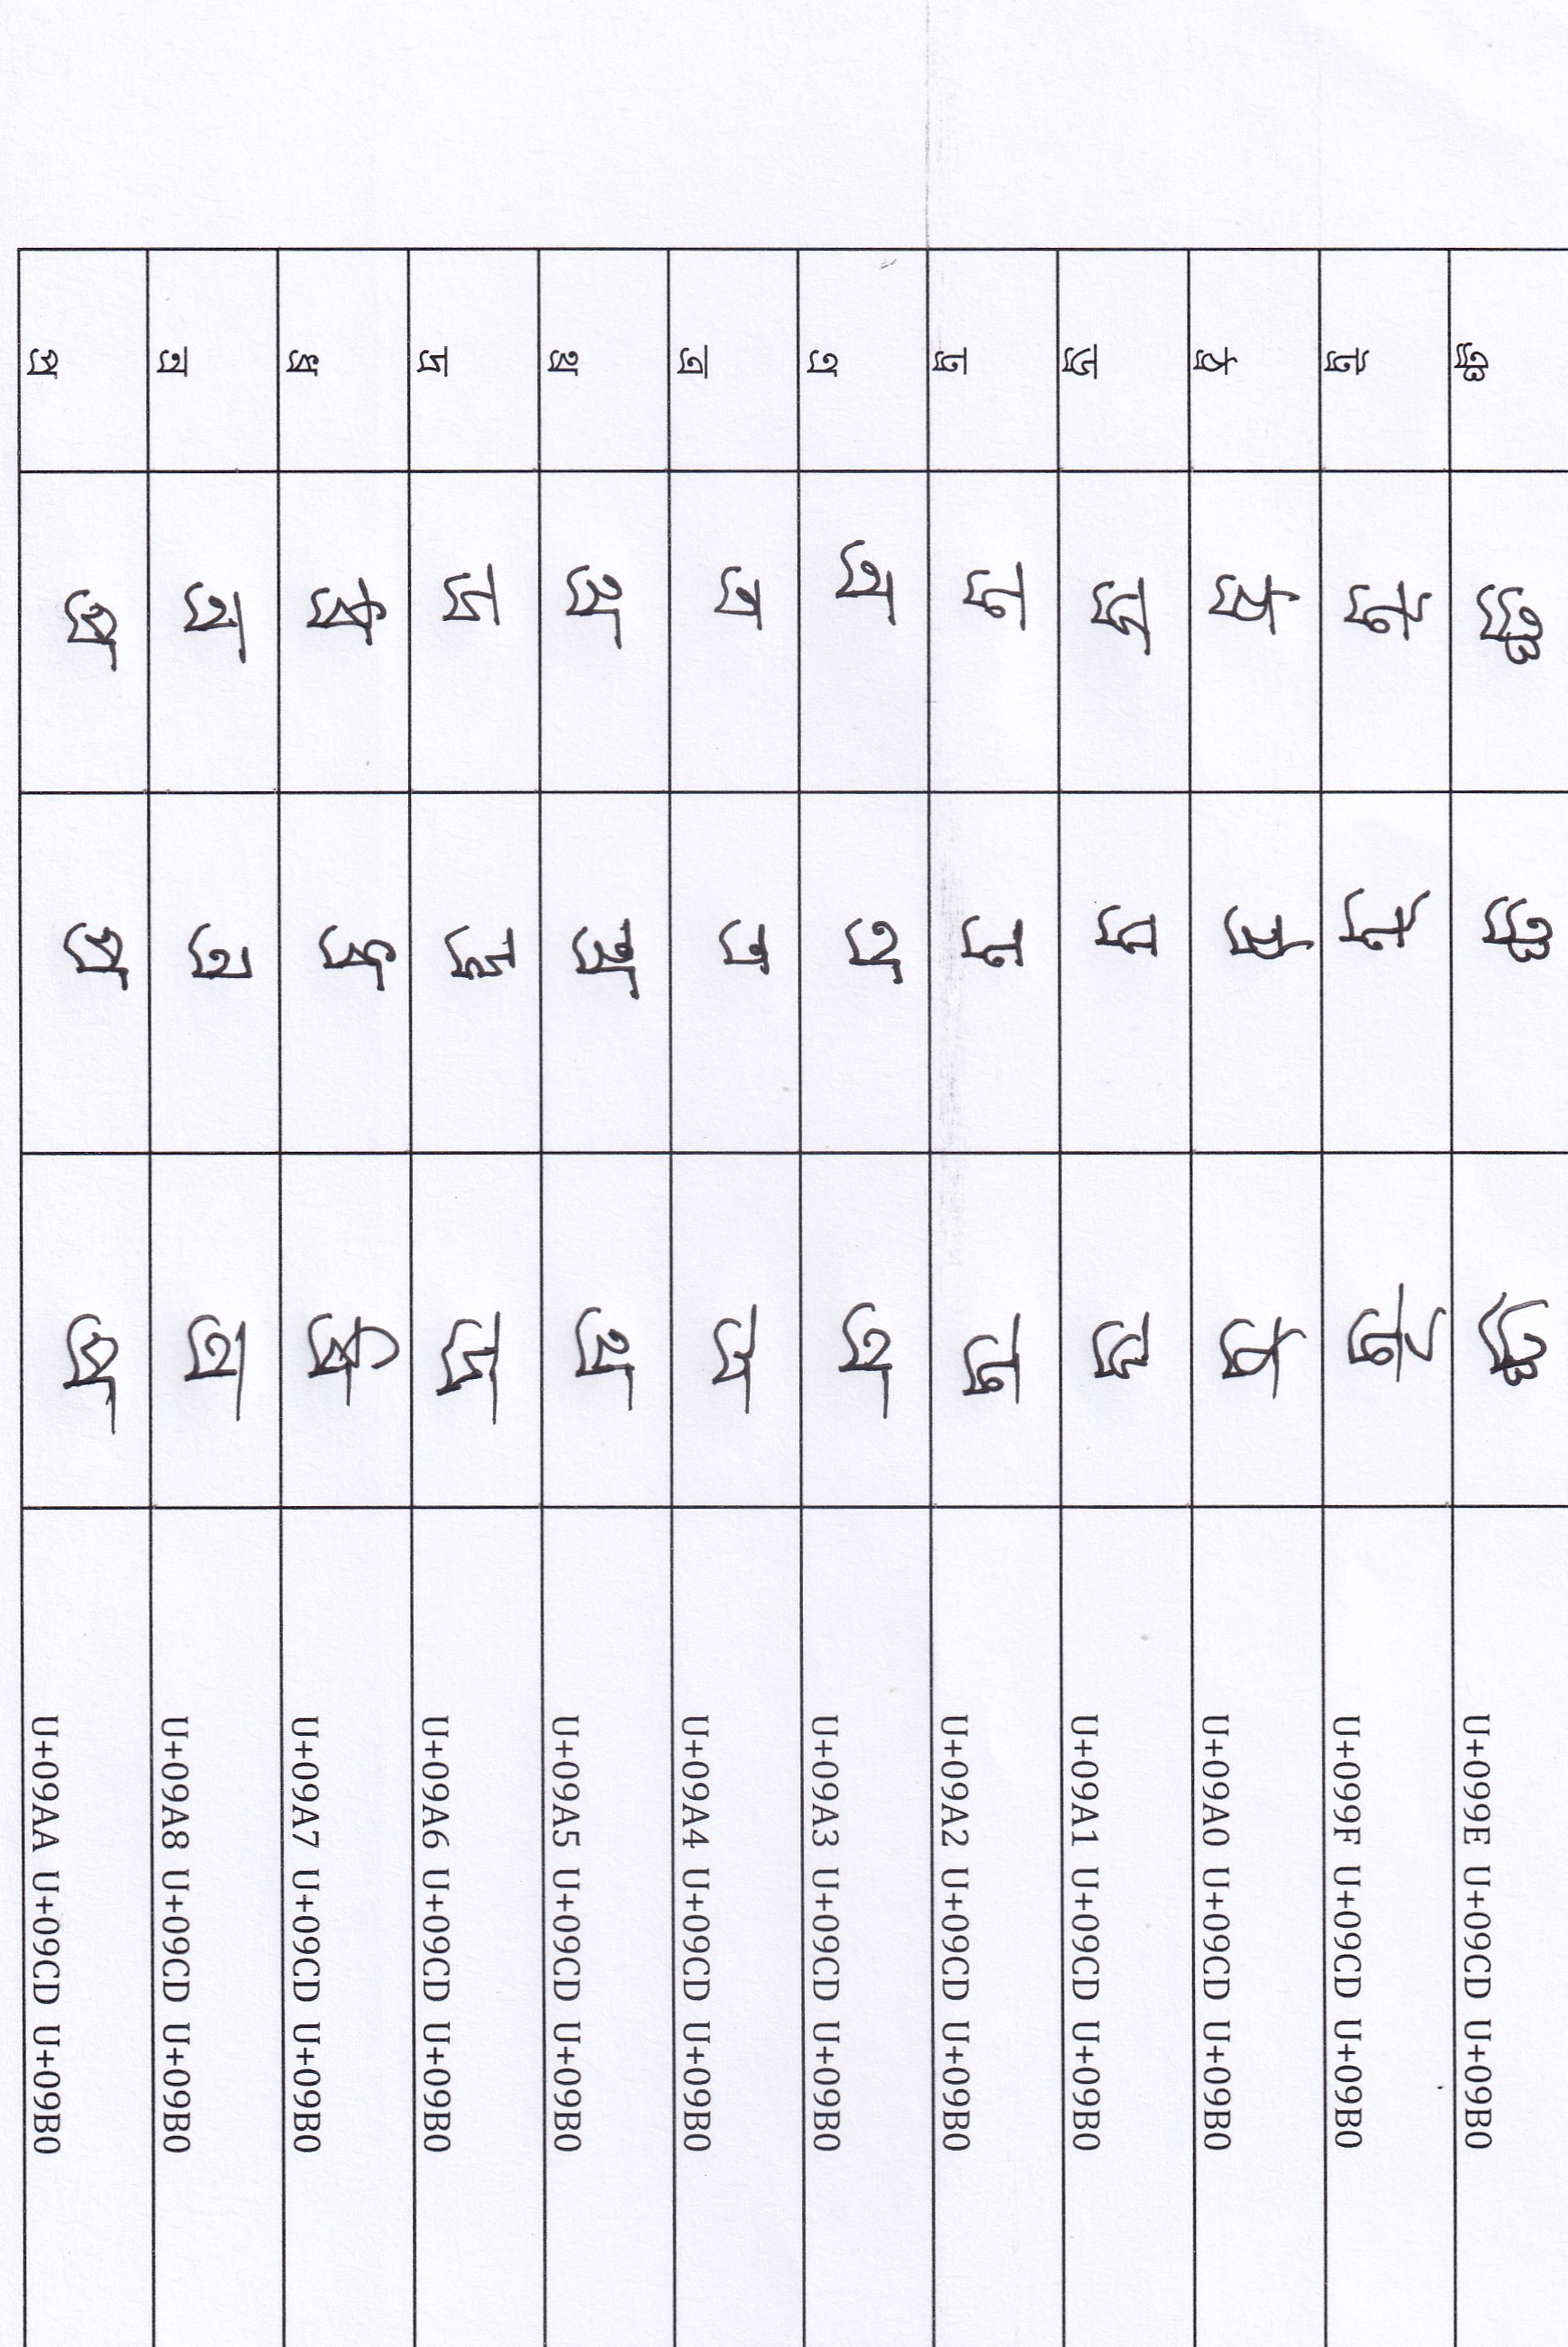 ঞ্র ঞ্র ঞ্র ঞ্র U+099E U+09CD U+09B0
ট্র ট্র ট্র ট্র U+099F U+09CD U+09B0
ঠ্র ঠ্র ঠ্র ঠ্র U+09A0 U+09CD U+09B0
ড্র ড্র ড্র ড্র U+09A1 U+09CD U+09B0
ঢ্র ঢ্র ঢ্র ঢ্র U+09A2 U+09CD U+09B0
ণ্র ণ্র ণ্র ণ্র U+09A3 U+09CD U+09B0
ত্র ত্র ত্র ত্র U+09A4 U+09CD U+09B0
থ্র থ্র থ্র থ্র U+09A5 U+09CD U+09B0
দ্র দ্র দ্র দ্র U+09A6 U+09CD U+09B0
ধ্র ধ্র ধ্র ধ্র U+09A7 U+09CD U+09B0
ন্র ন্র ন্র ন্র U+09A8 U+09CD U+09B0
প্র প্র প্র প্র U+09AA U+09CD U+09B0